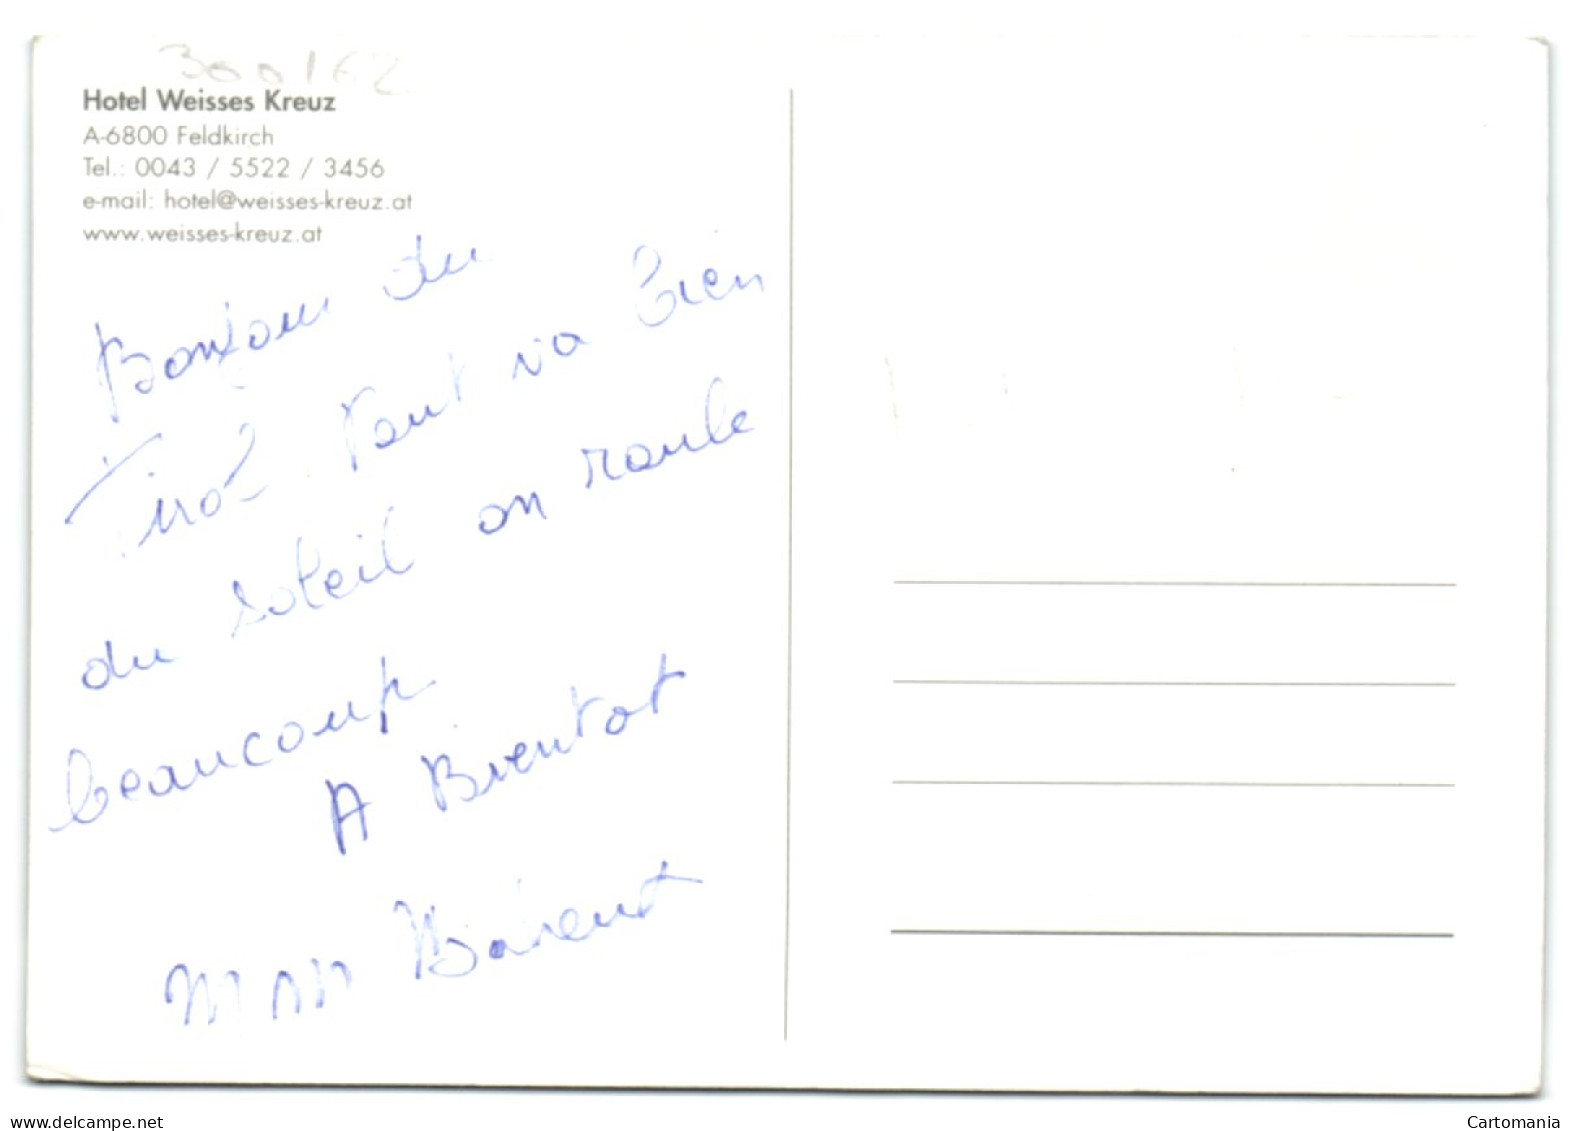 300162
Hotel Weisses Kreuz
A-6800 Feldkirch
Tel.: 0043 / 5522 / 3456
e-mail: hotel@weisses-kreuz.at
www.weisses-kreuz.at
Bonjour du
Tirol Tout va bien
du soleil on roule
beaucoup
A Bientot
www.delcampe.net
Cartomania